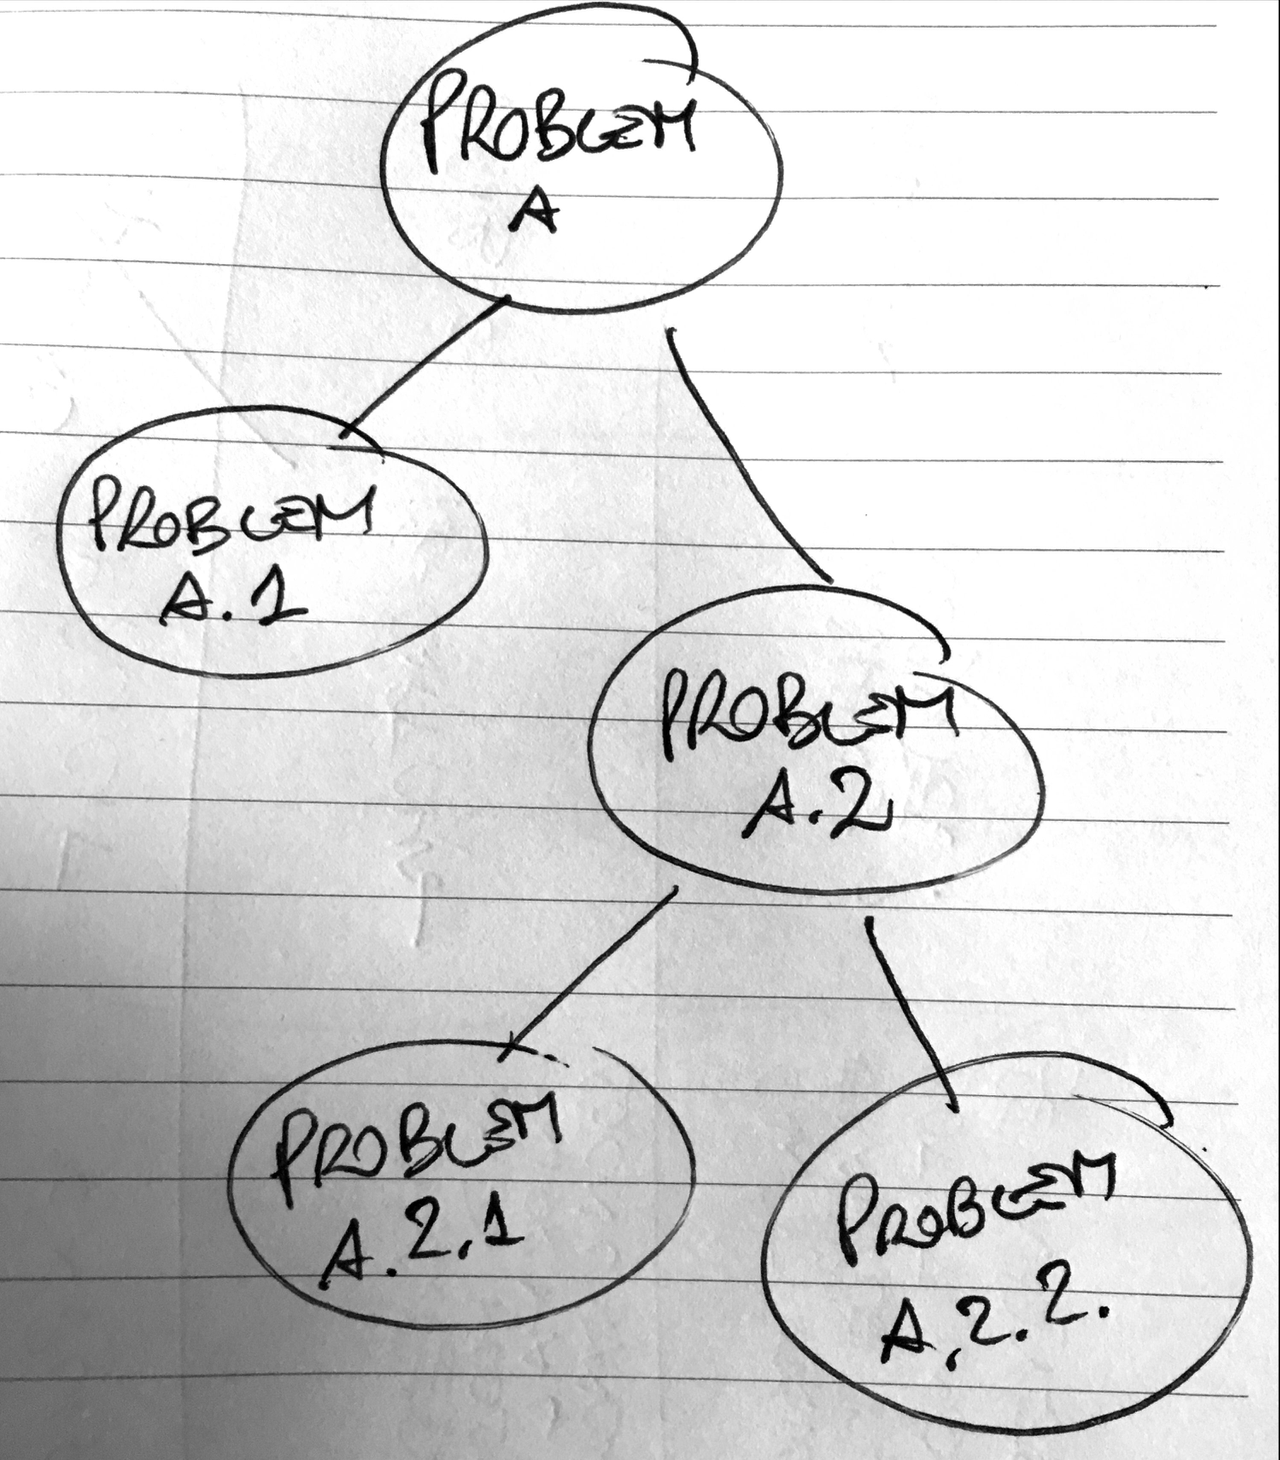 PROBLEM
A
PROBLEM
A.1
PROBLEM
A.2
PROBLEM
A.2.1
PROBLEM
A.2.2.